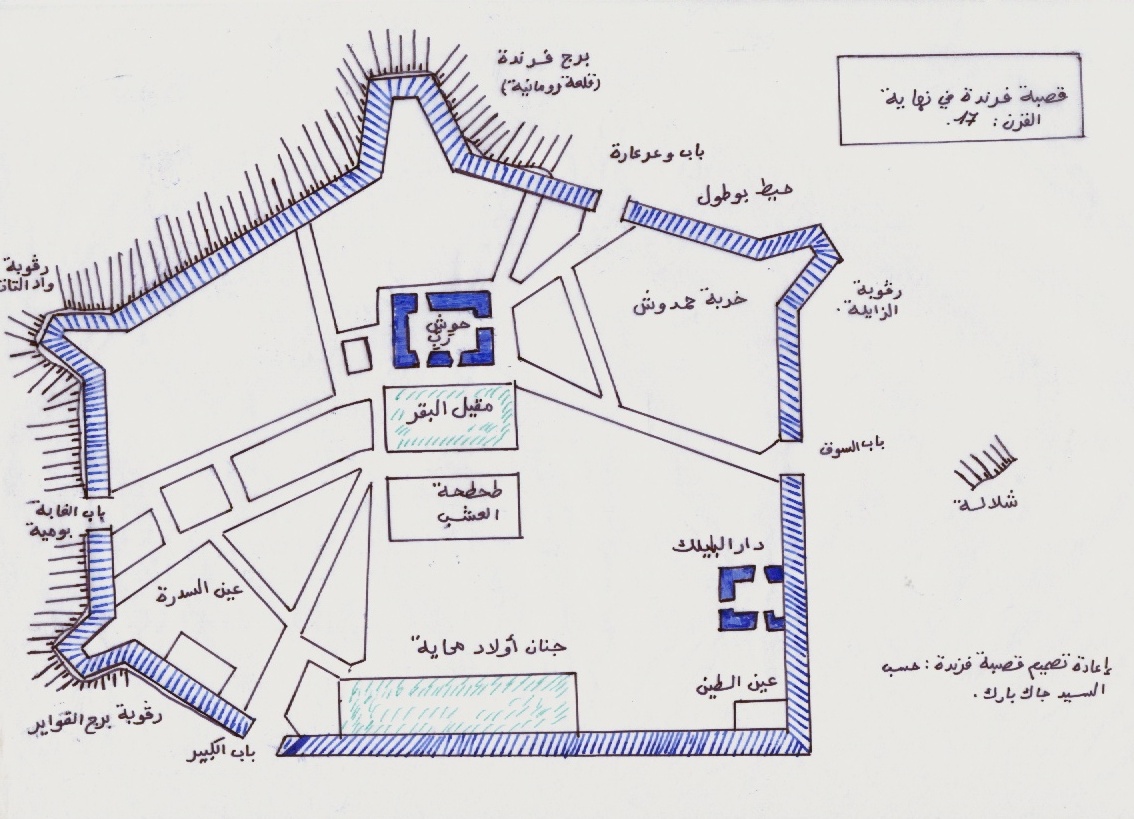 قصبة فرندة في نهاية
القرن: 17.
برج فرندة
(قلعة رومانية)
باب وعرعارة
حيط بوطول
رقوبة
الزايلة.
خربة حمدوش
رقوبة
واد التات
حوش
ترك
مقيل البقر
باب السوق
طحطحة
العشب
شلالة
باب الغابة
بومية
دار البايلك
عين السدرة
جنان أولاد محاية
عين الطين
إعادة تصميم قصبة فرندة: حسب
السيد جاك بارك.
رقوبة برج القواير
باب الكبير